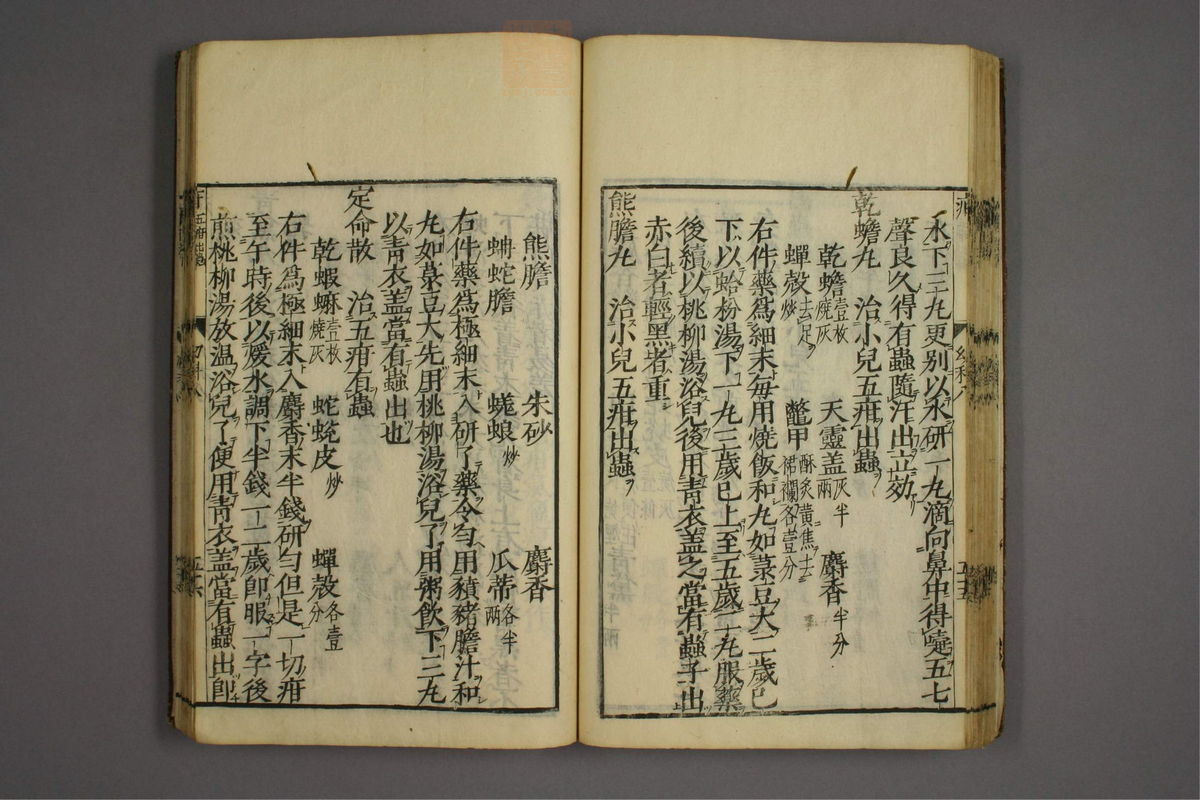 水下三丸更別以水研一丸滴向鼻中得嚔五七
聲良久得有蟲隨汗出立効
乾蟾丸 治小兒五疳出蟲
乾蟾壹枚燒灰 天靈盖灰半兩 麝香半分
蟬殼去足炒 鼈甲酥炙黃焦去裙襴各壹分
右件藥爲細末每用燒飯和丸如菉豆大二歲已
下以蛤粉湯下一丸三歲已上至五歲二丸服藥
後續以桃柳湯浴兒後用青衣盖之當有蟲子出
赤白者輕黑者重
熊膽丸 治小兒五疳出蟲
熊膽 朱砂 麝香
蚺蛇膽 蜣蜋炒 瓜蒂各半兩
右件藥爲極細末入研了藥令勻用豶猪膽汁和
丸如菉豆大先用桃柳湯浴兒了用粥飲下三丸
以青衣盖當有蟲出也
定命散 治五疳有蟲
乾蝦蟆壹枚燒灰 蛇蛻皮炒 蟬殼各壹分
右件爲極細末入麝香末半錢研勻但是一切疳
至午時後以煖水調下半錢一二歲卽服一字後
煎桃柳湯放温浴兒了便用青衣盖當有蟲出卽